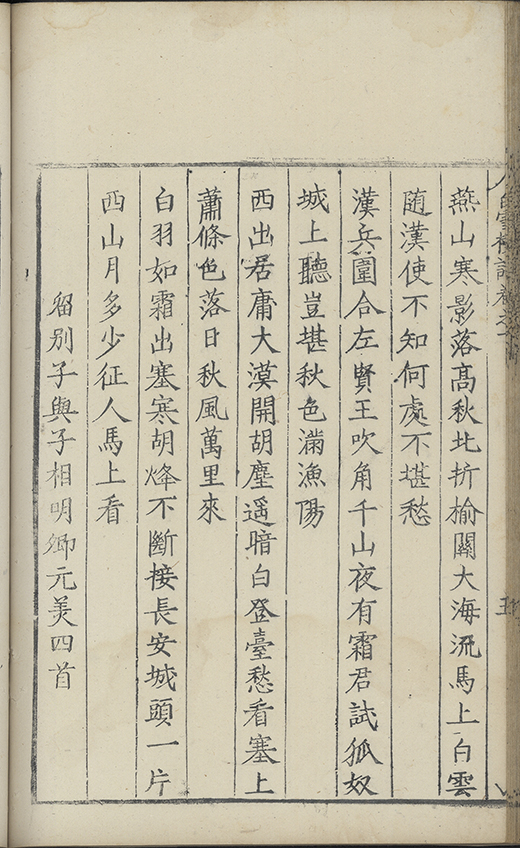 燕山寒影落髙秋北折榆關大海流馬上白雲
随漢使不知何處不堪愁
漢兵圍合左賢王吹角千山夜有霜君試狐奴
城上聽豈堪秋色滿漁陽
西出居庸大漠開胡塵遥暗白登臺愁看塞上
蕭條色落日秋風萬里來
白羽如霜出塞寒胡烽不斷接長安城頭一片
西山月多少征人馬上看
留别子與子相明卿元美四首